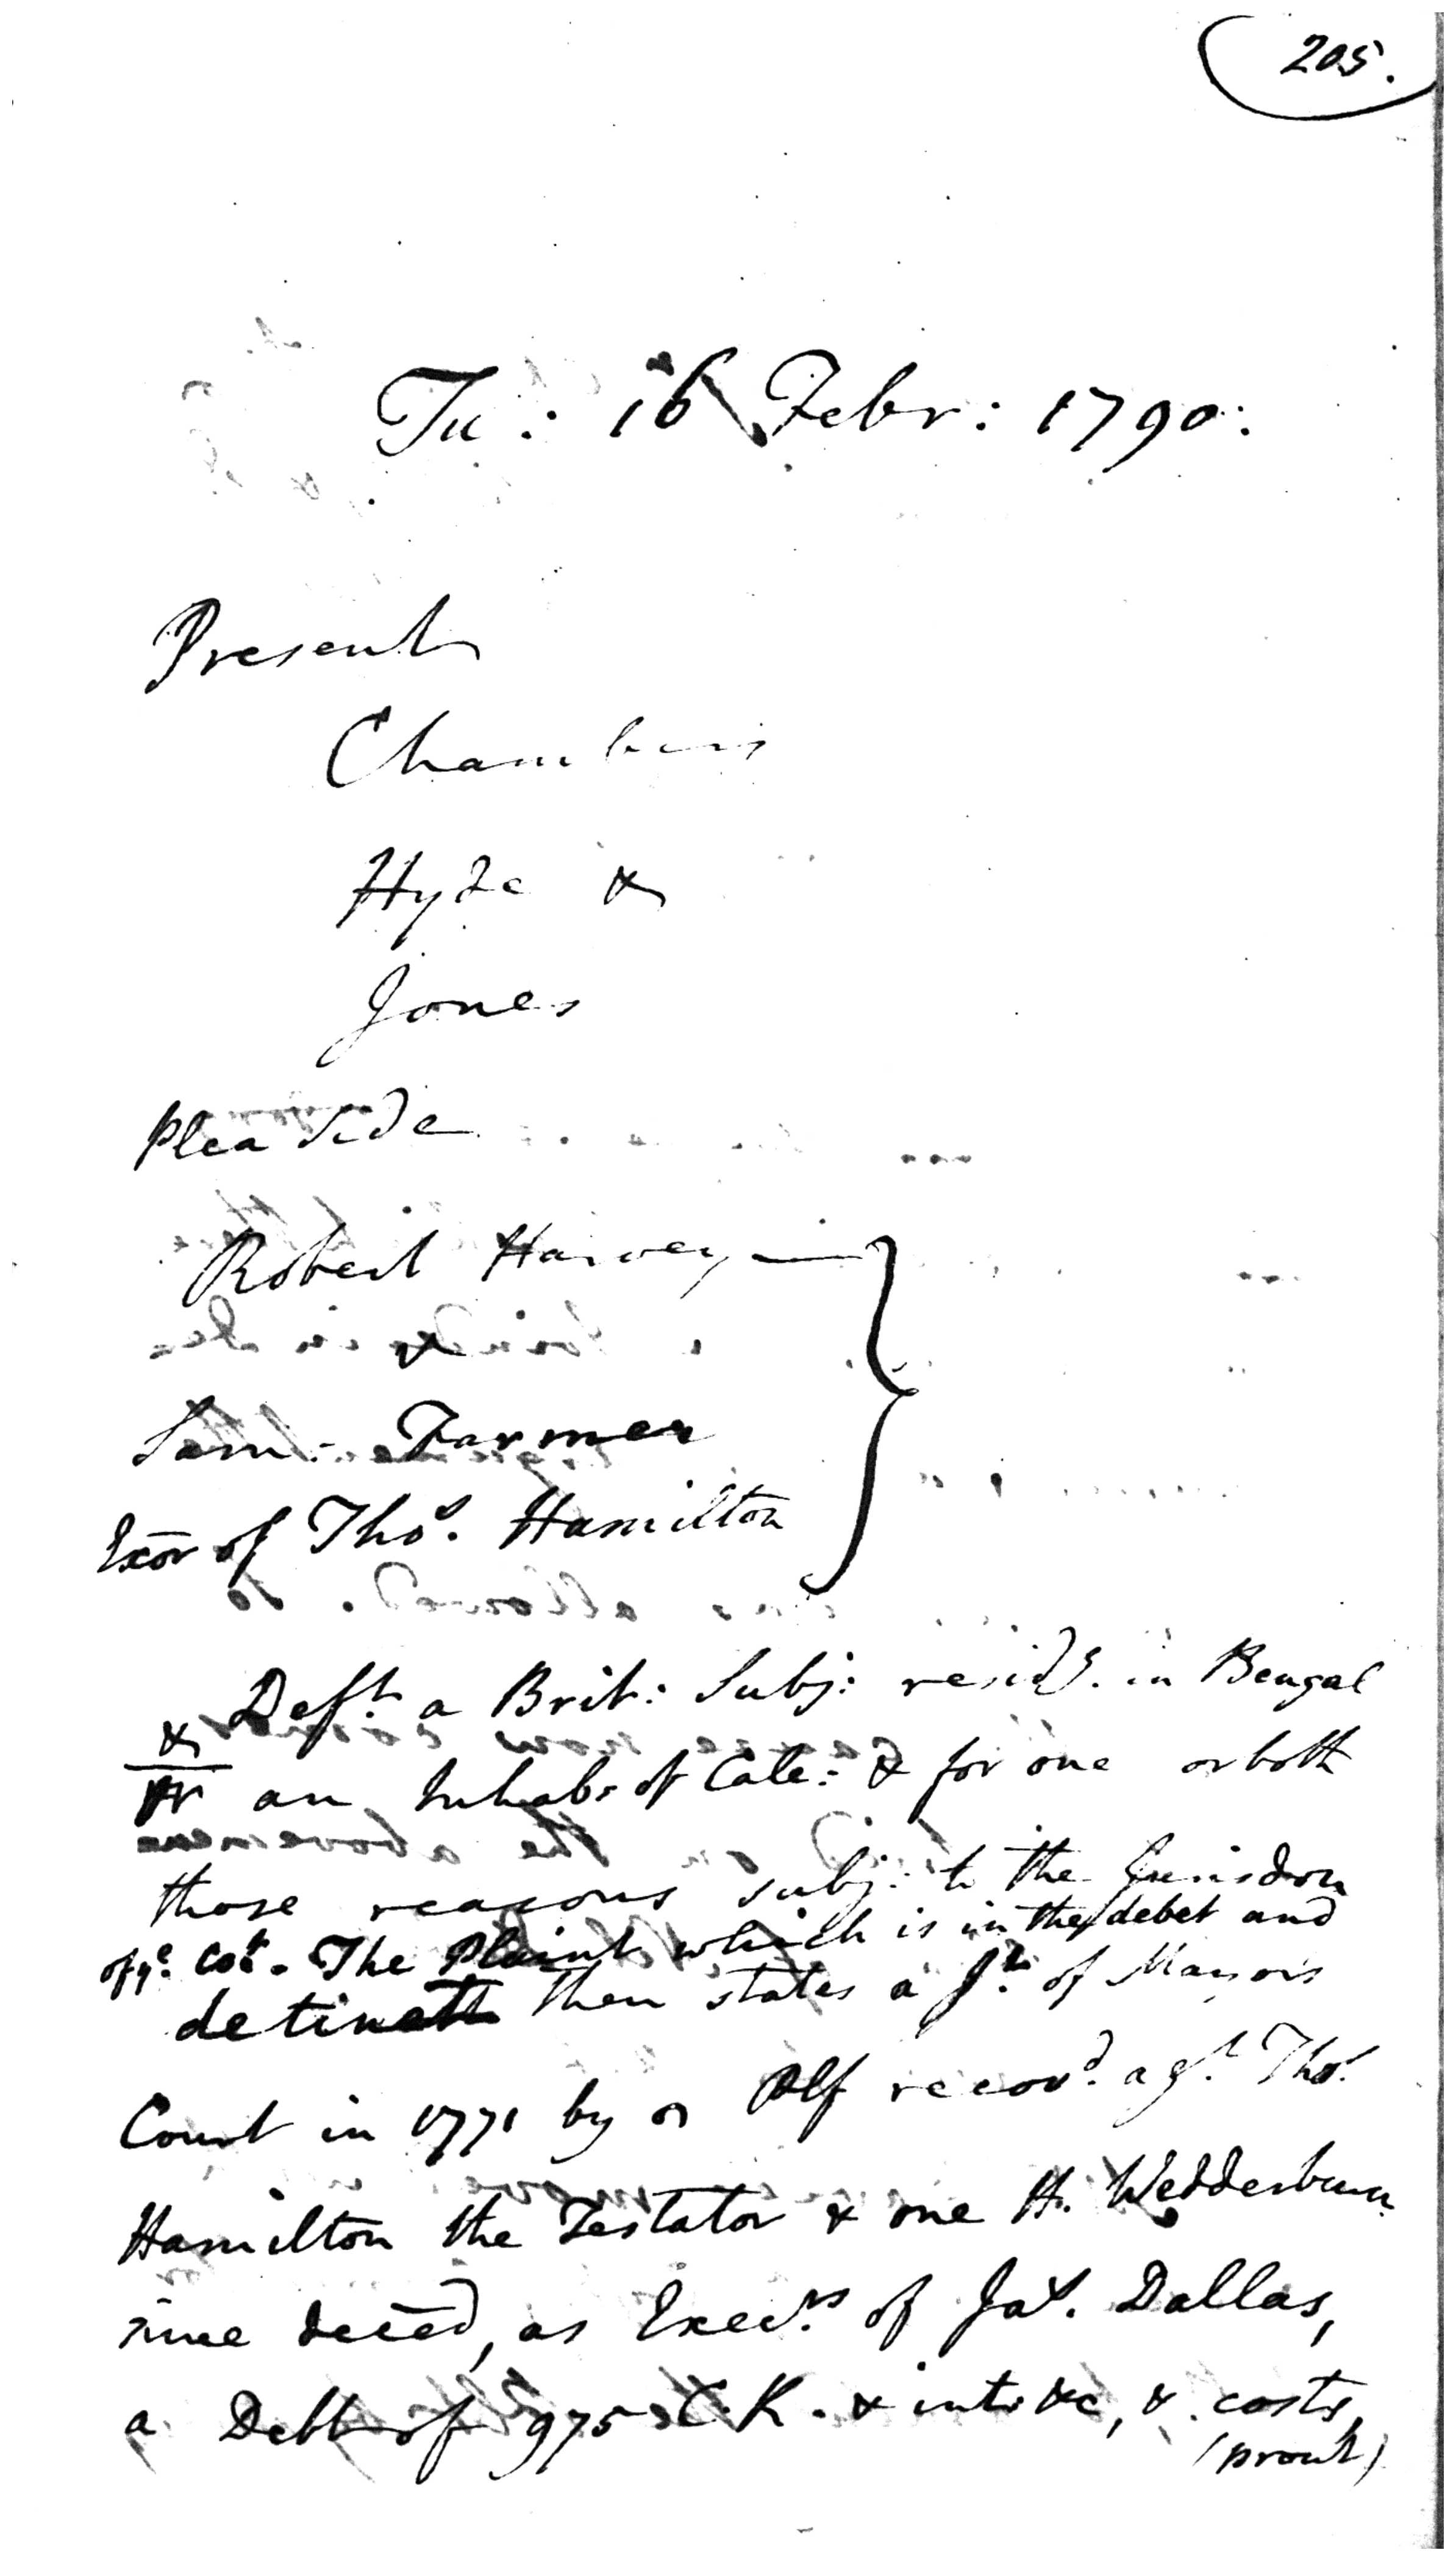 205.
Tu: 16 Febr: 1790:
Present
Chambers
Hyde &
Jones
Plea Side
Robert Harvey
v
Sam: Farmer
Exōr of Thoˢ. Hamilton
Defᵗ a Brit: Subj: residᵍ. in Bengal
&
an Inhab: of Calc: & for one or both
those reasons subj: to the Jurisdon
of yᵉ Coᵗ. The Plaint which is in the debet and
detinet then states a Jᵗ. of Mayors
Court in 1771 by Plf recovᵈ. agᵗ. Thoˢ.
Hamilton the Testator & one H. Wedderburn
since deced, as Execʳˢ of Jaˢ. Dallas,
a Debt of 975 C.R. & int: &c, & costs,
(prout)